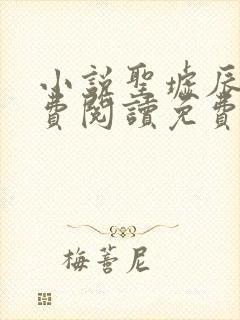 小説聖墟辰
費閱讀免費
梅菩尼